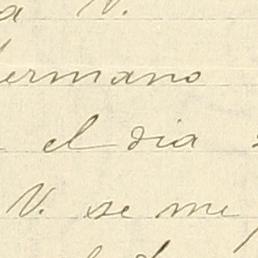 a V.
hermano
el dia
V. se me